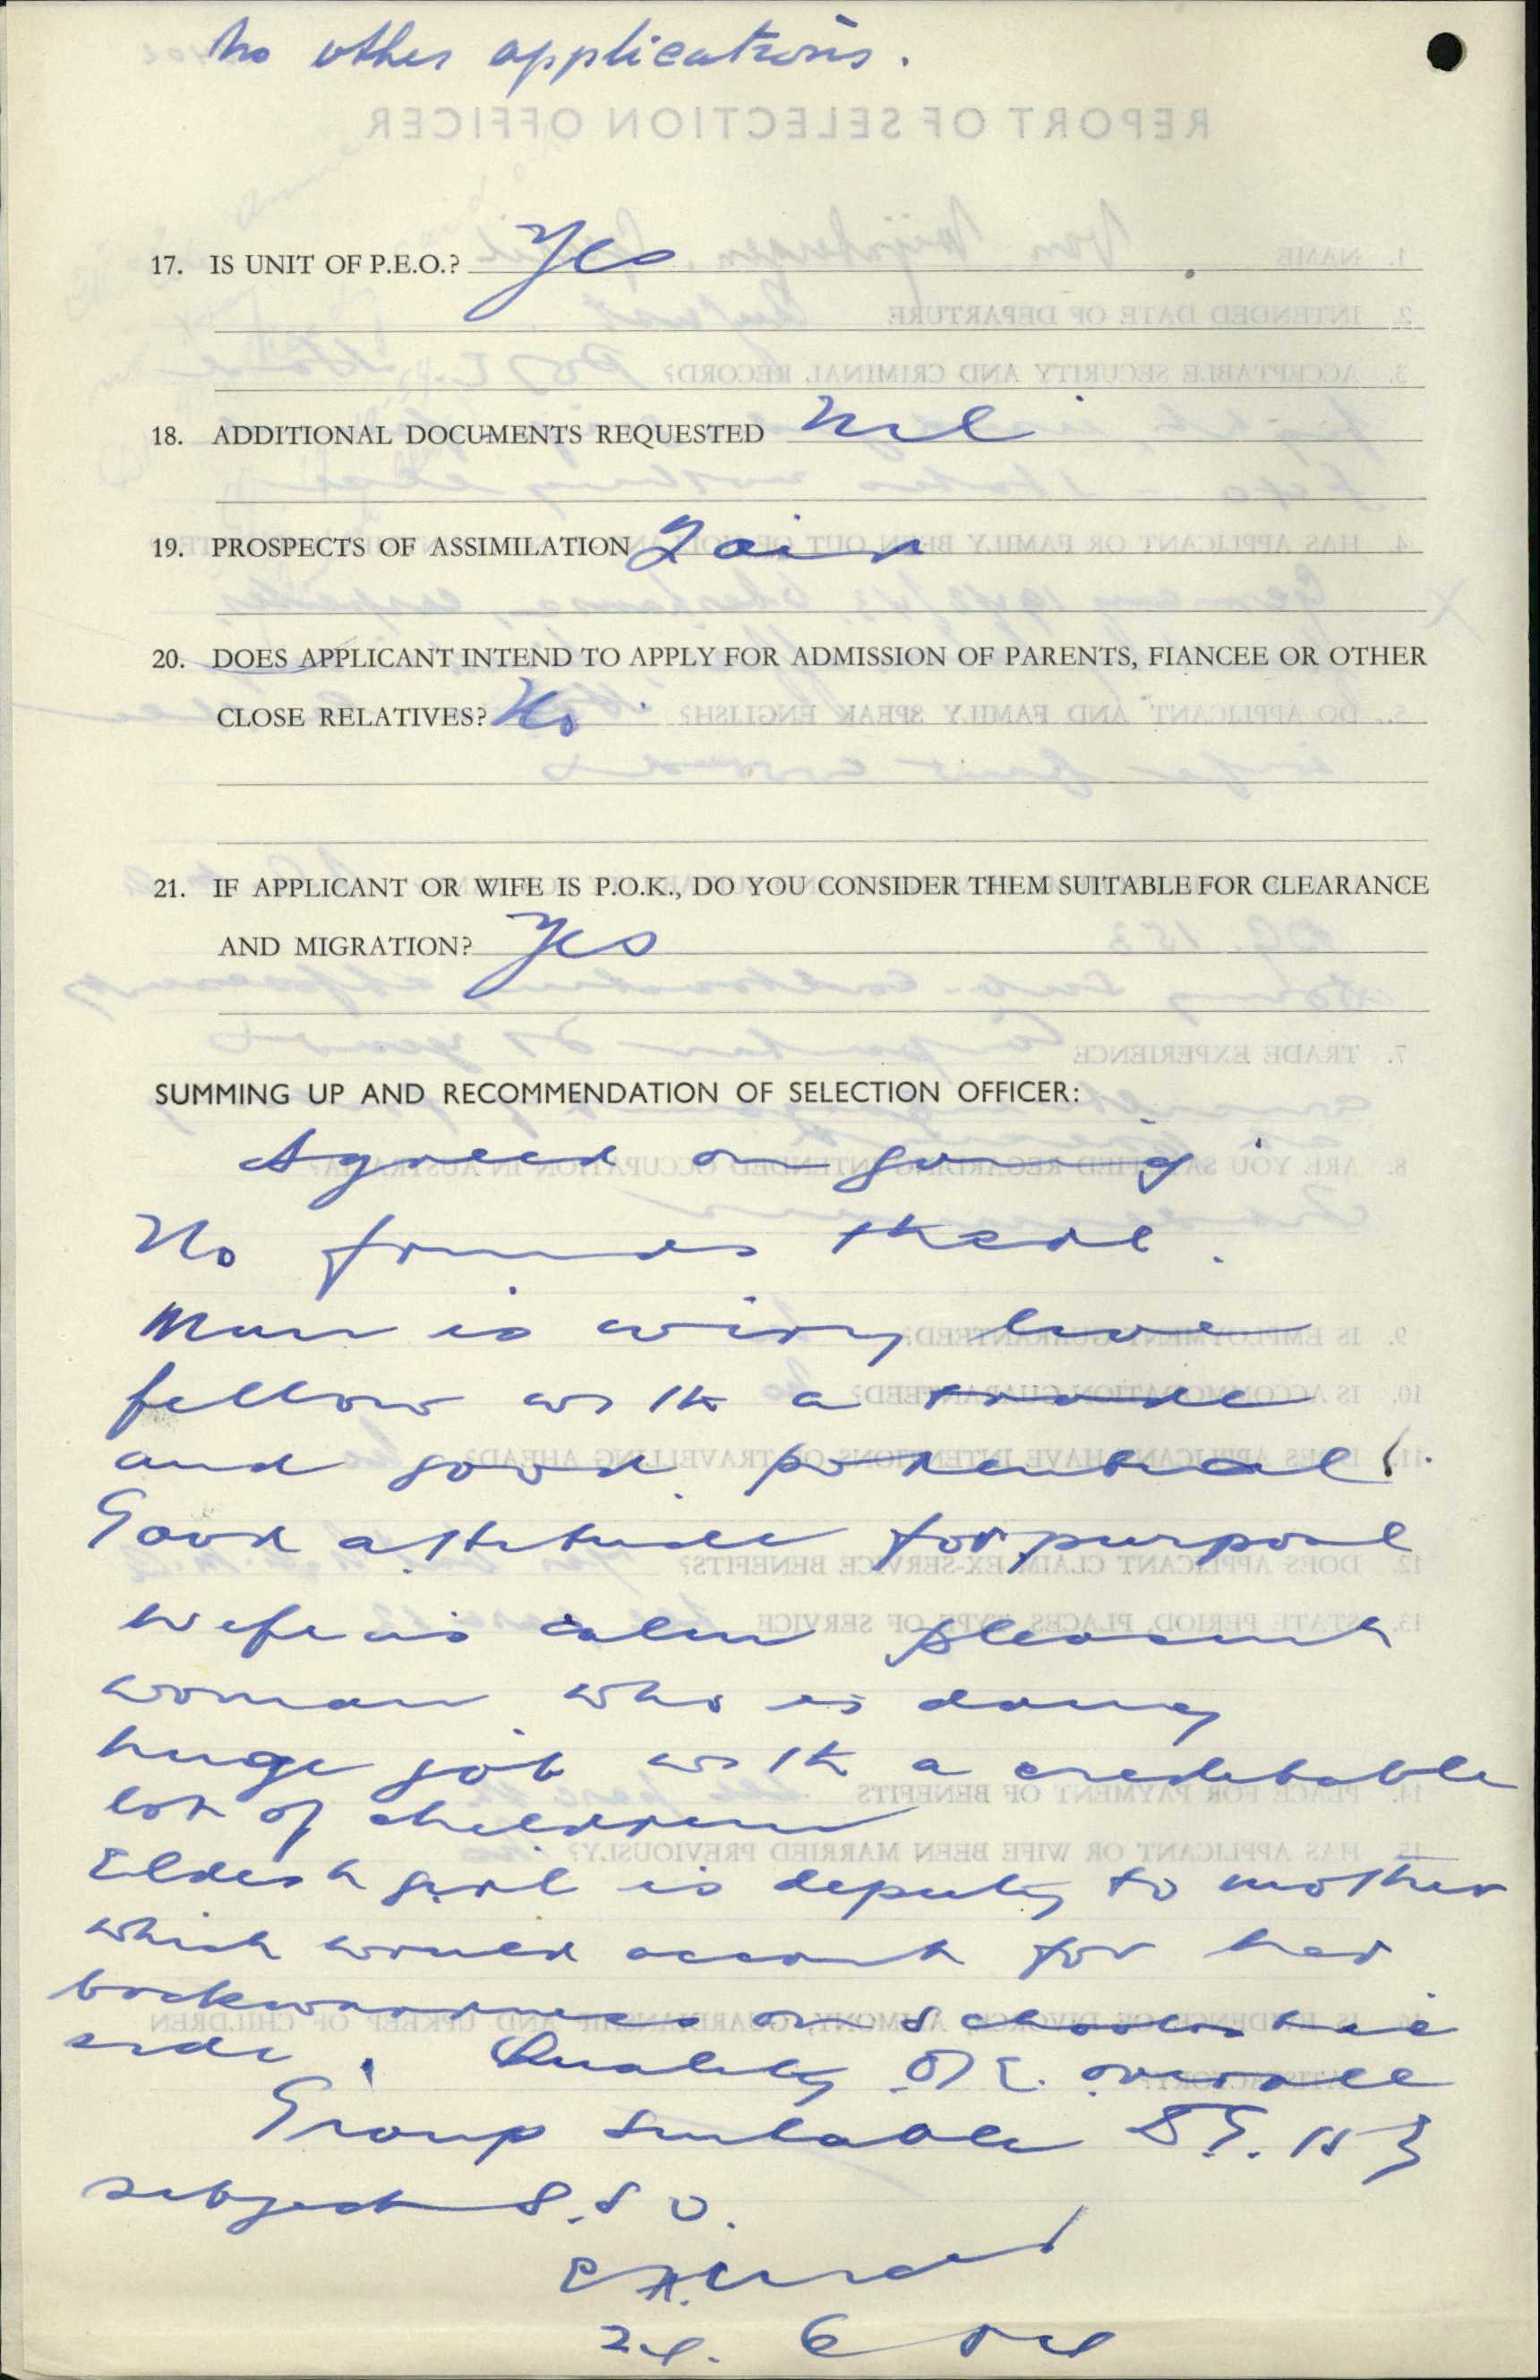 No other applications.
17. IS UNIT OF P.E.O.? Yes
18. ADDITIONAL DOCUMENTS REQUESTED Nil
19. PROSPECTS OF ASSIMILATION Fair
20. DOES APPLICANT INTEND TO APPLY FOR ADMISSION OF PARENTS, FIANCEE OR OTHER
CLOSE RELATIVES? No
21. IF APPLICANT OR WIFE IS P.O.K., DO YOU CONSIDER THEM SUITABLE FOR CLEARANCE
AND MIGRATION? Yes
SUMMING UP AND RECOMMENDATION OF SELECTION OFFICER:
Agreed on going
No friends there.
Man is wiry
fellow with a trade
and good potential.
Good attitude for purpose
Wife is calm pleasant
woman who is doing
huge job with a creditable
lot of children
Eldest girl is deputy to mother
which would account for her
backwardness on scholastic
side. Quality O.K. overall
Group suitable
subject S.S.O.